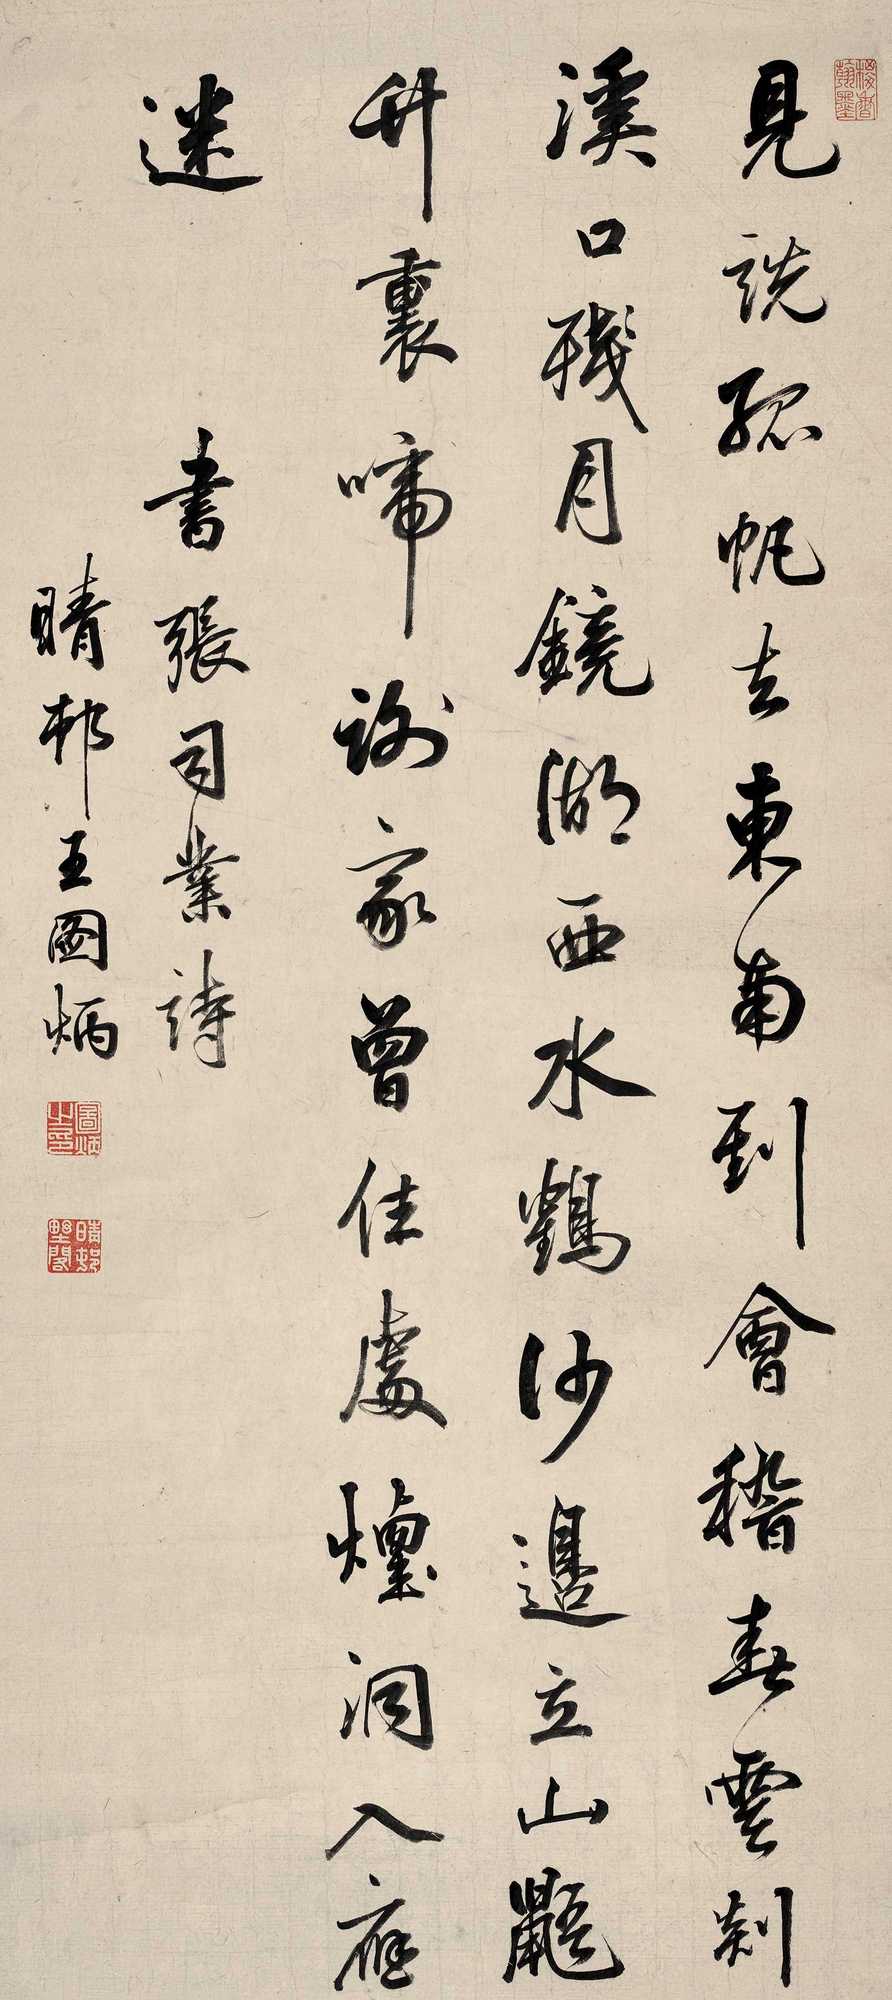 見説孤帆去東南到會稽春雲剡
溪口殘月鏡湖西水鶴沙邊立山鼯
竹裏啼謝家曾住處煙洞入應
迷
書張司業詩
晴邨王圖炳
圖炳之印